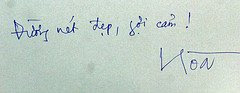 Đường nét đẹp, gợi cảm!
Hòa